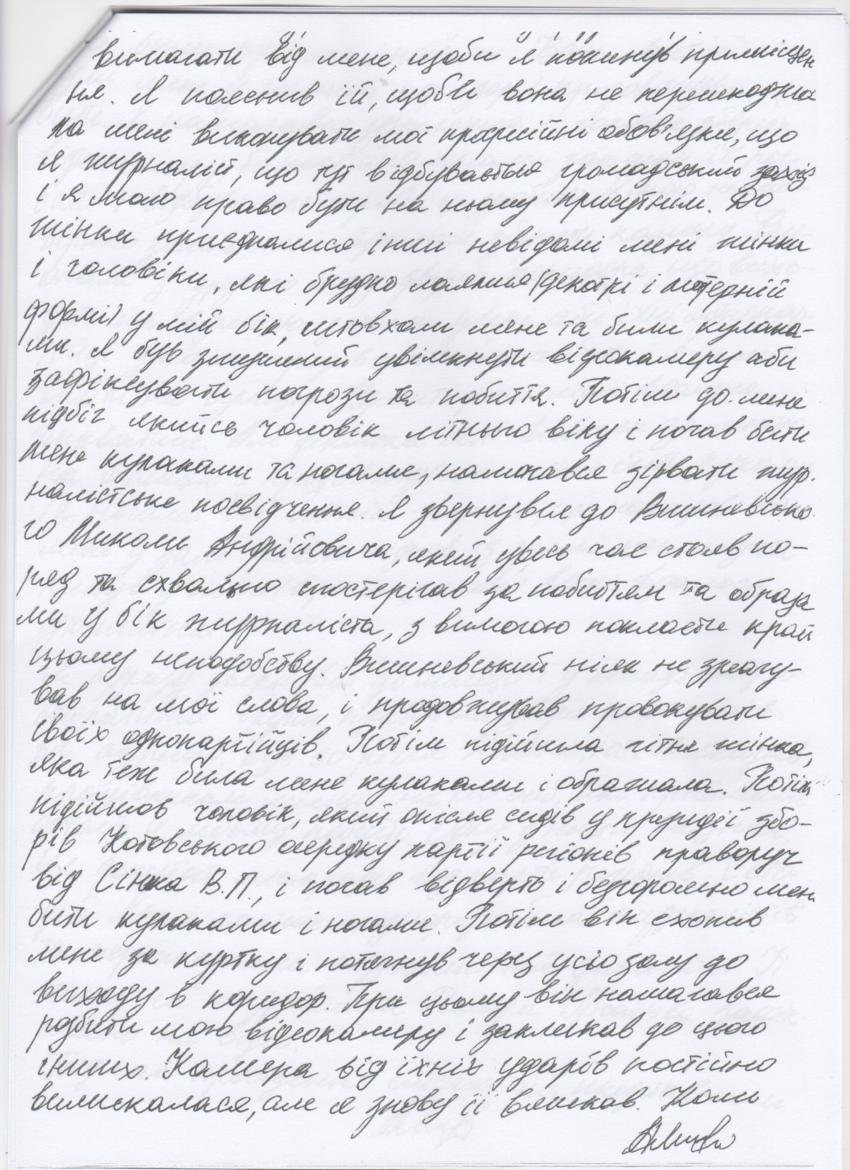 вимагати від мене, щоби я покинув приміщен
ня. Я пояснив їй, щоби вона не перешкоджа
ла мені виконувати мої професійні обов'язки, що
я журналіст, що тут відбувається громадський захід
і я маю право бути на ньому присутнім. До
жінки приєдналися інші невідомі мені жінки
і чоловіки, які брудно лаялися (декотрі і матерній
формі) у мій бік, штовхали мене та били кулака-
ми. Я був змушений увімкнути відеокамеру аби
зафіксувати погрози та побиття. Потім до мене
підбіг якийсь чоловік літнього віку і почав бити
мене кулаками та ногами, намагався зірвати жур.
налістське посвідчення. Я звернувся до Вишневсько
го Миколи Андрійовича, який увесь час стояв по-
ряд та схвально спостерігав за побиттям та образа
ми у бік журналіста, з вимогою покласти край
цьому неподобству. Вишневський ніяк не зреагу-
вав на мої слова, і продовжував провокувати
своїх однопартійців. Потім підійшла літня жінка,
яка теж била мене кулаками і ображала. Потім
підійшов чоловік, який опісля сидів у президії збо-
рів Котовського осередку партії регіонів праворуч
від Сінька В.П., і почав відверто і безсоромно мене
бити кулаками і ногами. Потім він схопив
мене за куртку і потягнув через усю залу до
виходу в коридор. При цьому він намагався
розбити мою відеокамеру і закликав до цього
інших. Камера від їхніх ударів постійно
вимикалася, але я знову її вмикав. Коли